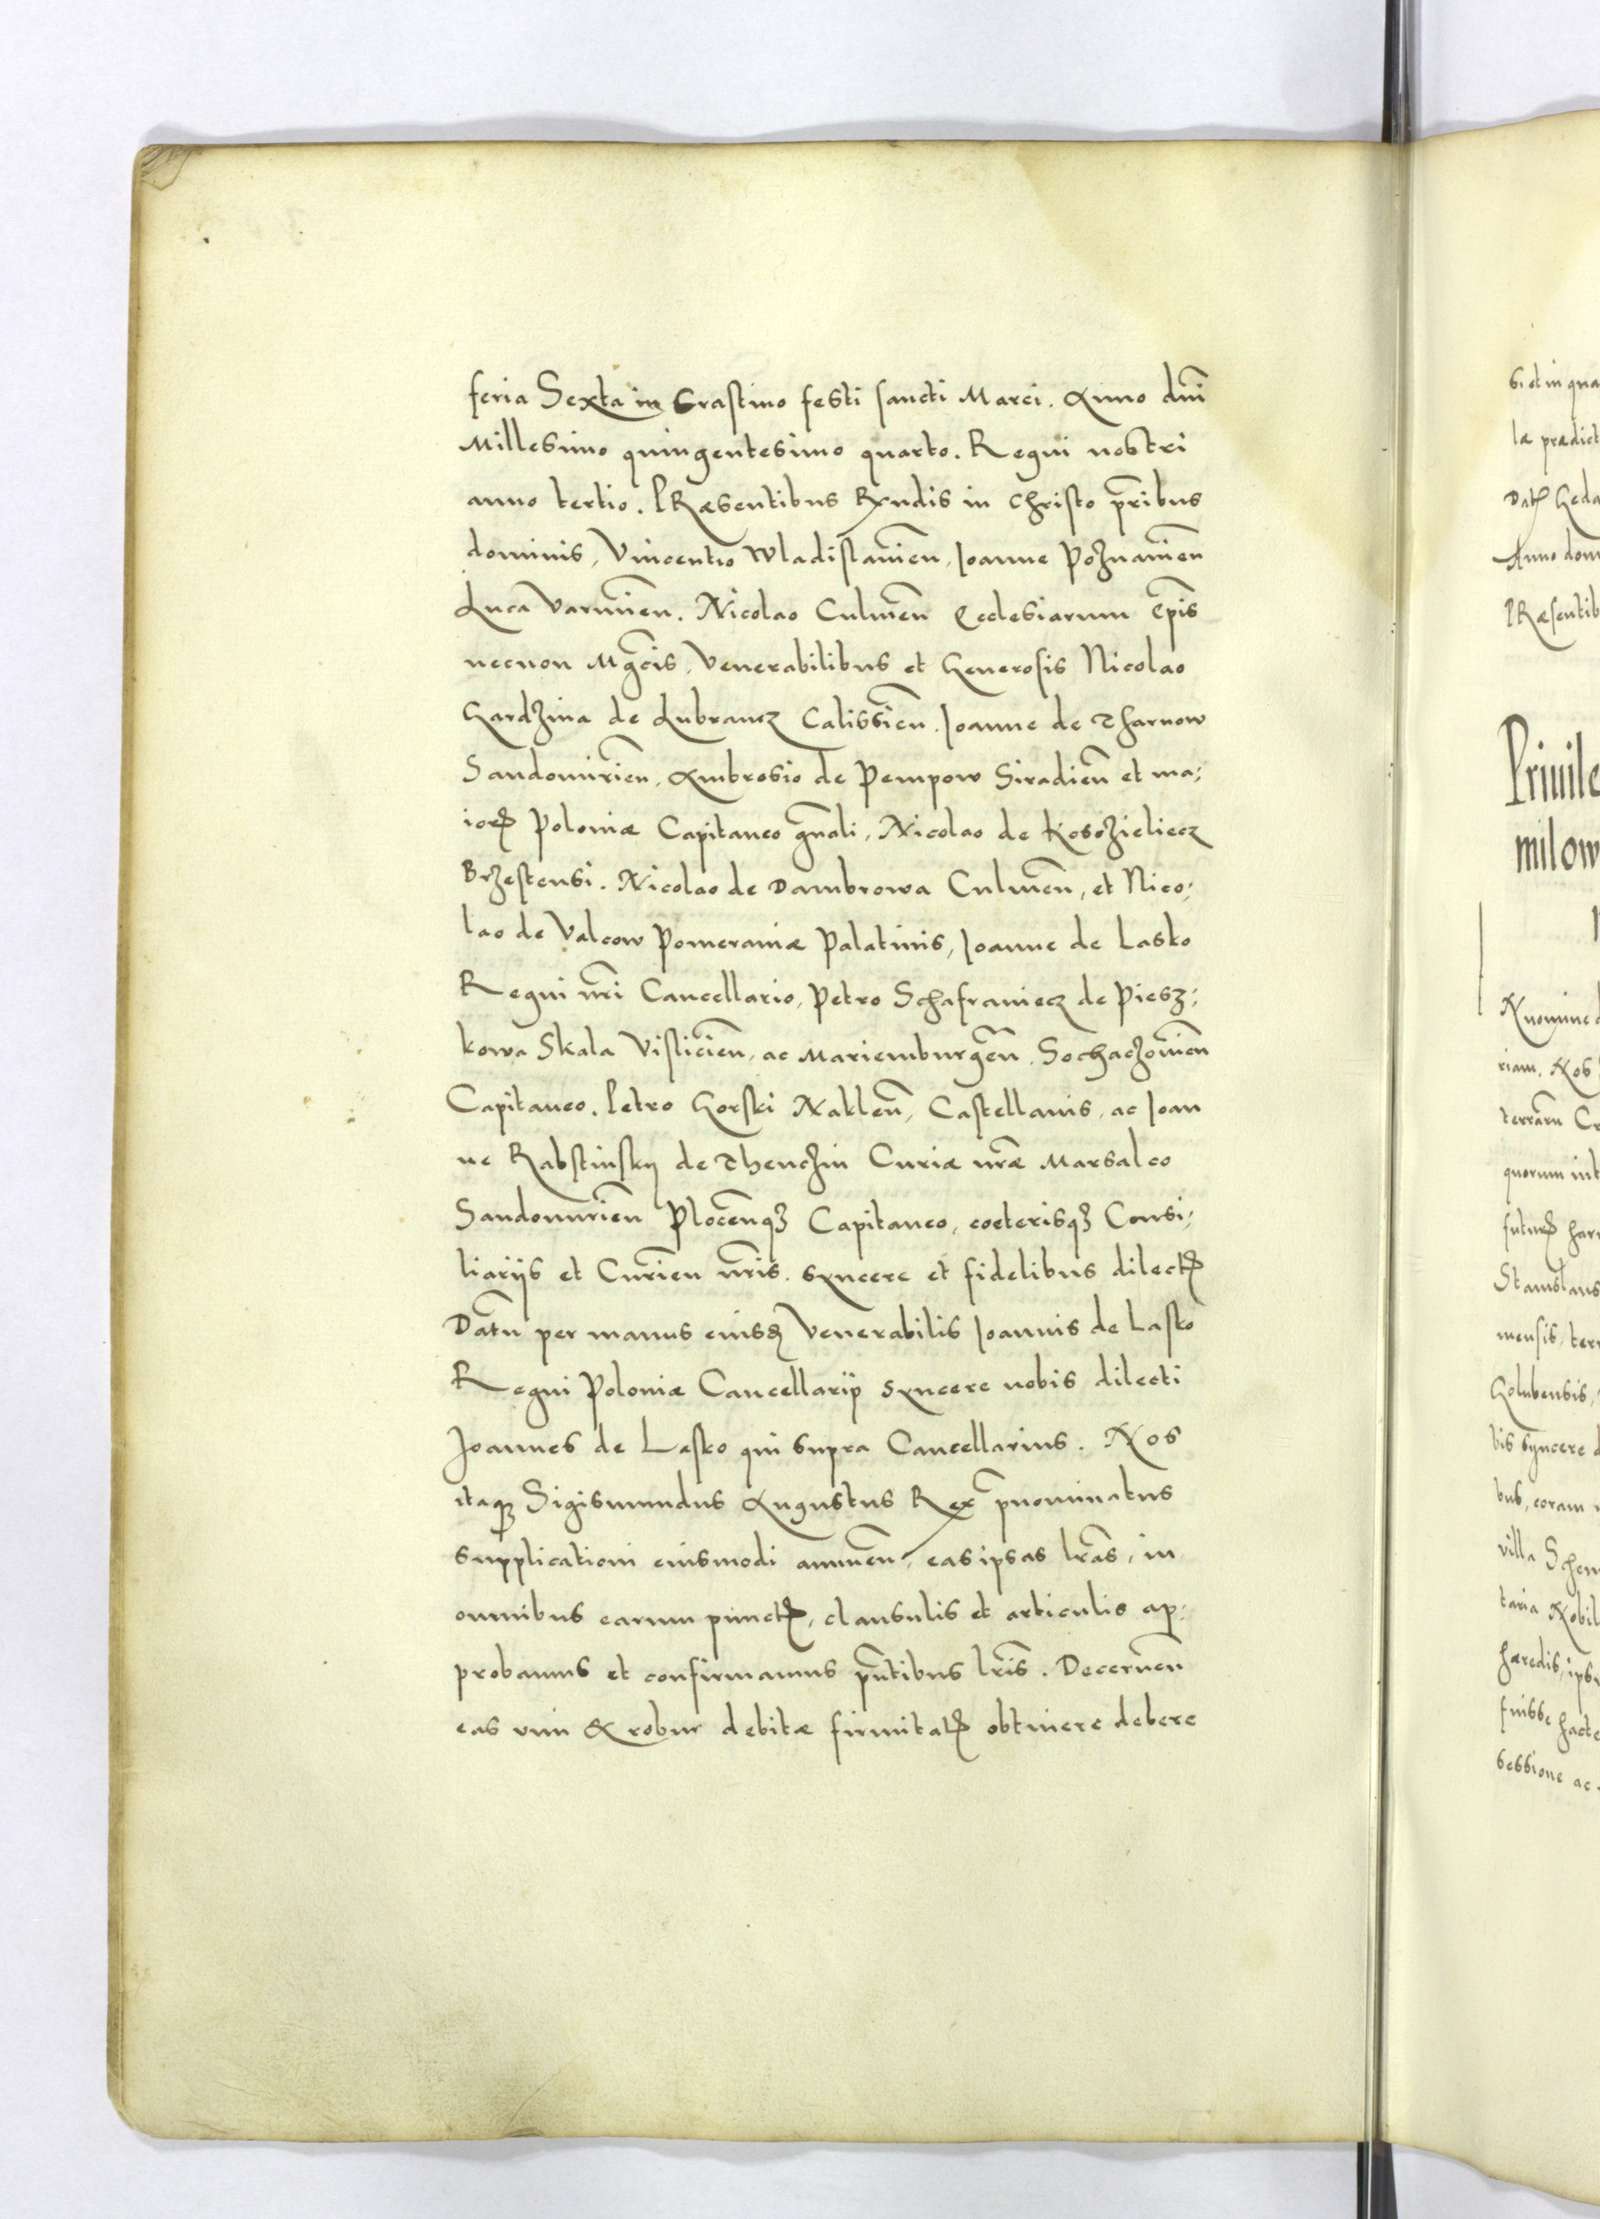 feria Sexta in Crastino festi sancti Marci. Anno dni
Millesimo quingentesimo quarto. Regni nostri
anno tertio. PRæsentibus Rxndis in Christo pribus
dominis, Vincentio Wladislavien, Joanne Poznanien
Luca Varmien. Nicolao Culmen Ecclesiarum Epis
necnon Mgcis, Venerabilibus et Generosis Nicolao
Gardzina de Lubrancz Calissien. Joanne de Tharnow
Sandomirien, Ambrosio de Pempow Siradien et ma;
iorꝭ Poloniæ Capitaneo gnali, Nicolao de Kosczieliecz
Brzestensi. Nicolao de Dambrowa Culmen, et Nico;
lao de Valcow Pomeraniæ Palatinis, Joanne de Lasko
Regni nri Cancellario, Petro Schafraniecz de Piesz;
kowa Skala Vislicien, ac Marienburgen. Sochaczovien
Capitaneo. Petro Gorski Naklen, Castellanis, ac Joan
ne Rabstinsky de Thenczin Curiæ nræ Marsalco
Sandomirien Plocenqꝫ Capitaneo, coeterisqꝫ Consi;
liarijs et Curien nris. syncere et fidelibus dilectꝭ
Datu per manus eiusꝫ Venerabilis Joannis de Lasko
Regni Poloniæ Cancellarij syncere nobis dilecti
Joannes de Lasko qui supra Cancellarius. Nos
itaqꝫ Sigismundus Augustus Rex pnominatus
supplicationi eiusmodi annuen, eas ipsas lras, in
omnibus earum punctꝭ, clausulis et articulis ap;
probamus et confirmamus pntibus lris. Decernen
eas vim & robur debitæ firmitatꝭ obtinere debere
si et in qua
læ prædict
Datꝭ Geda
Anno dom
PRæsentib
Priuile
milow
N nomine d
riam. Nos
terraru Cr
quorum int
futurꝭ har
Stanislaus
mensis, terr
Golubensis,
bis syncere d
bus, coram
villa Schem
taria Nobil
hæredis, ips
fuisse hacte
sessione ac